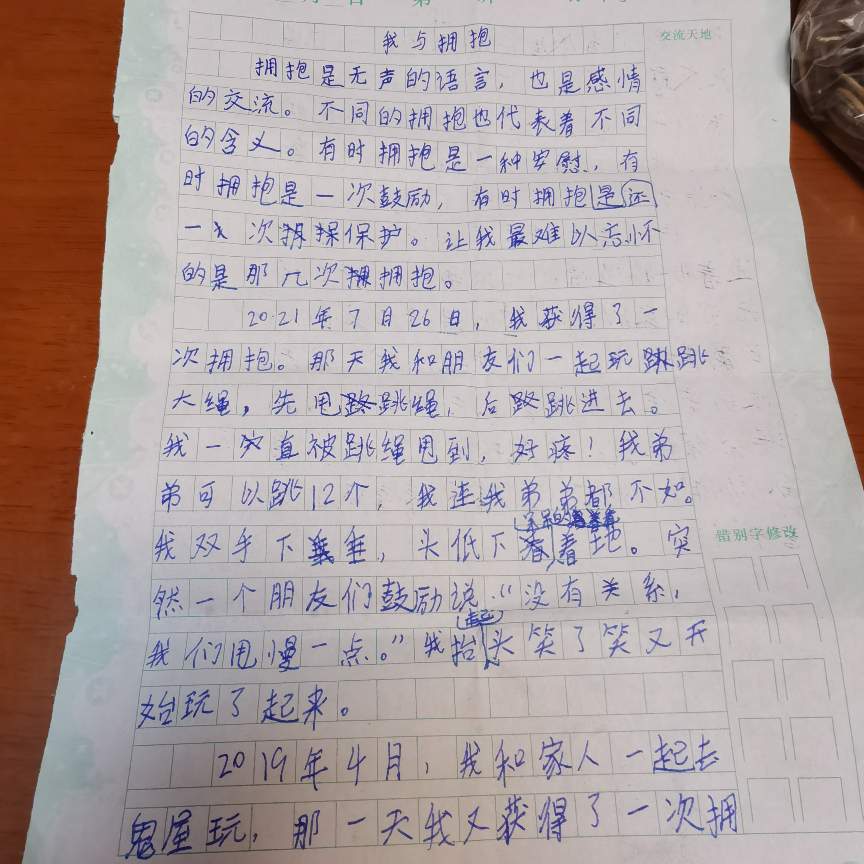 我与拥抱
交流天地
拥抱是无声的语言，也是感情
的交流。不同的拥抱也代表着不同
的含义。有时拥抱是一种安慰，有
时拥抱是一次鼓励，有时拥抱是还
一次保护。让我最难以忘怀
的是那几次拥抱。
2021年7月26日，我获得了一
次拥抱。那天我和朋友们一起玩跳
大绳，先甩跳绳，后跳进去。
我一直被跳绳甩到，好疼！我弟
弟可以跳12个，我连我弟弟都不如。
我双手下垂，头低下看着地。突
然一个朋友们鼓励说：“没有关系，
我们甩慢一点。”我抬起头笑了笑又开
始玩了起来。
2019年4月，我和家人一起去
鬼屋玩，那一天我又获得了一次拥
错别字修改